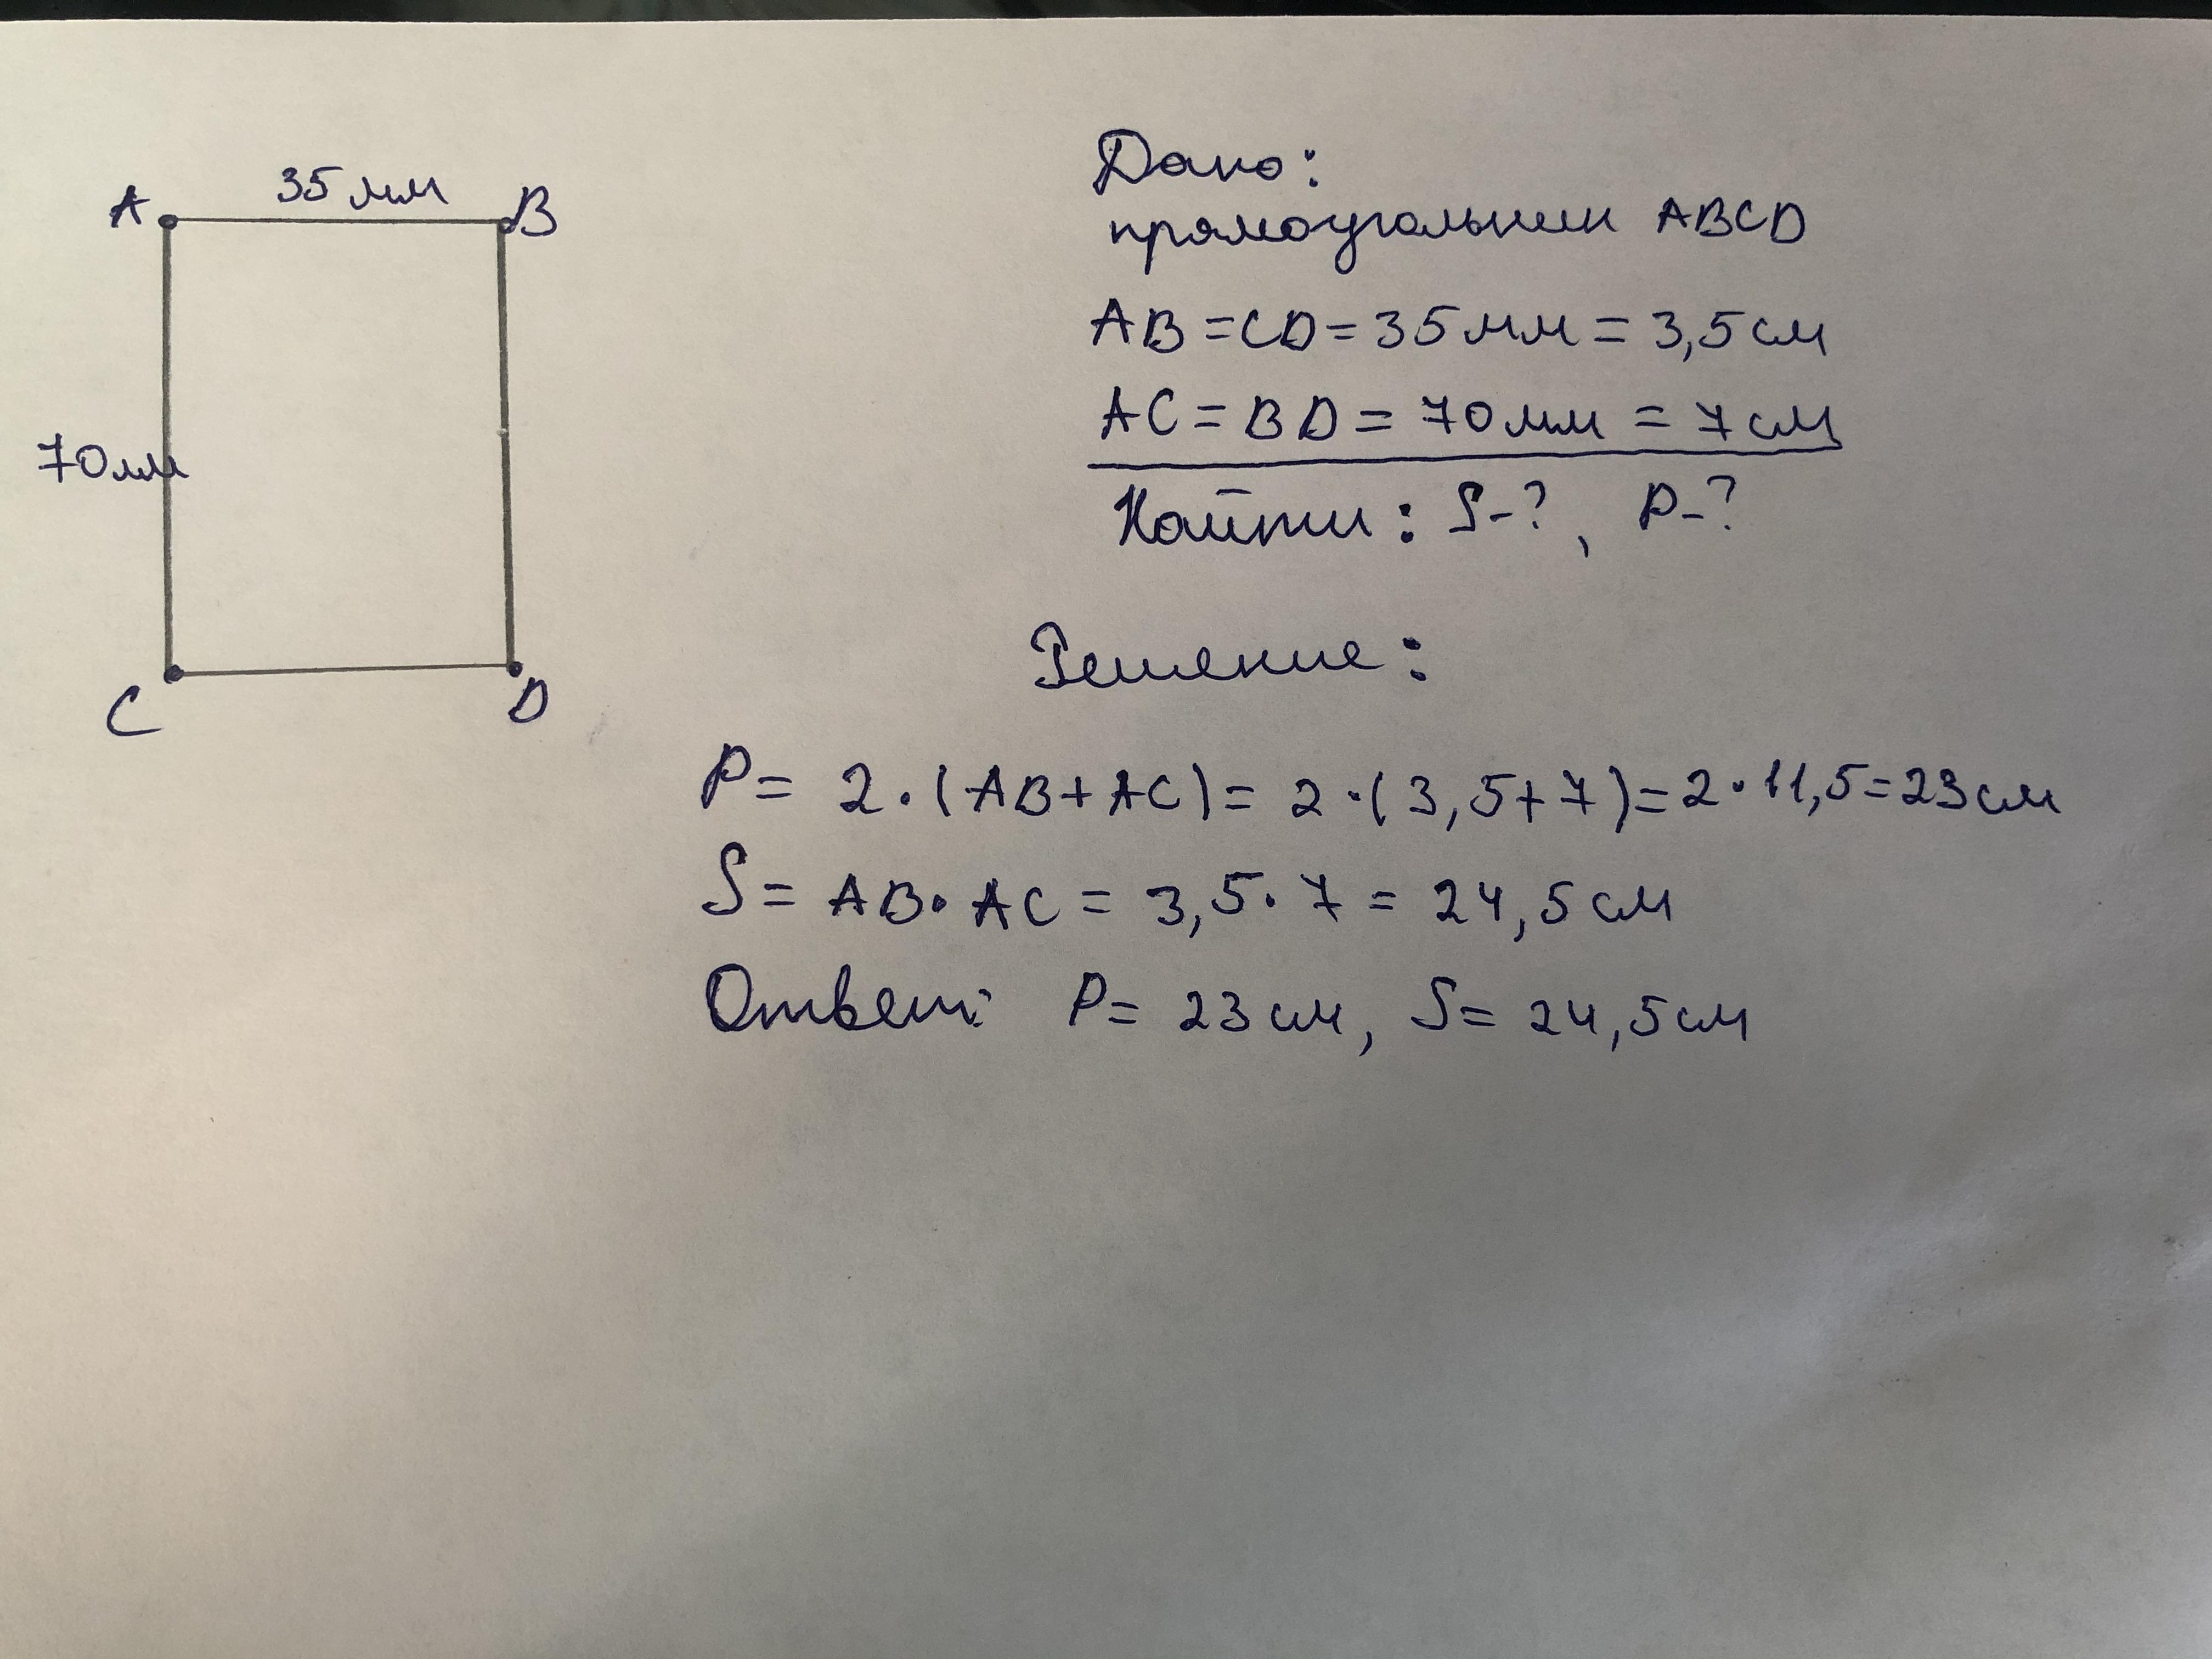 A 35 мм B
70 мм
C D
Дано:
прямоугольник ABCD
AB = CD = 35 мм = 3,5 см
AC = BD = 70 мм = 7 см
Найти: S-?, P-?
Решение:
P = 2·(AB+AC) = 2·(3,5+7) = 2·11,5 = 23 см
S = AB·AC = 3,5·7 = 24,5 см
Ответ: P = 23 см, S = 24,5 см